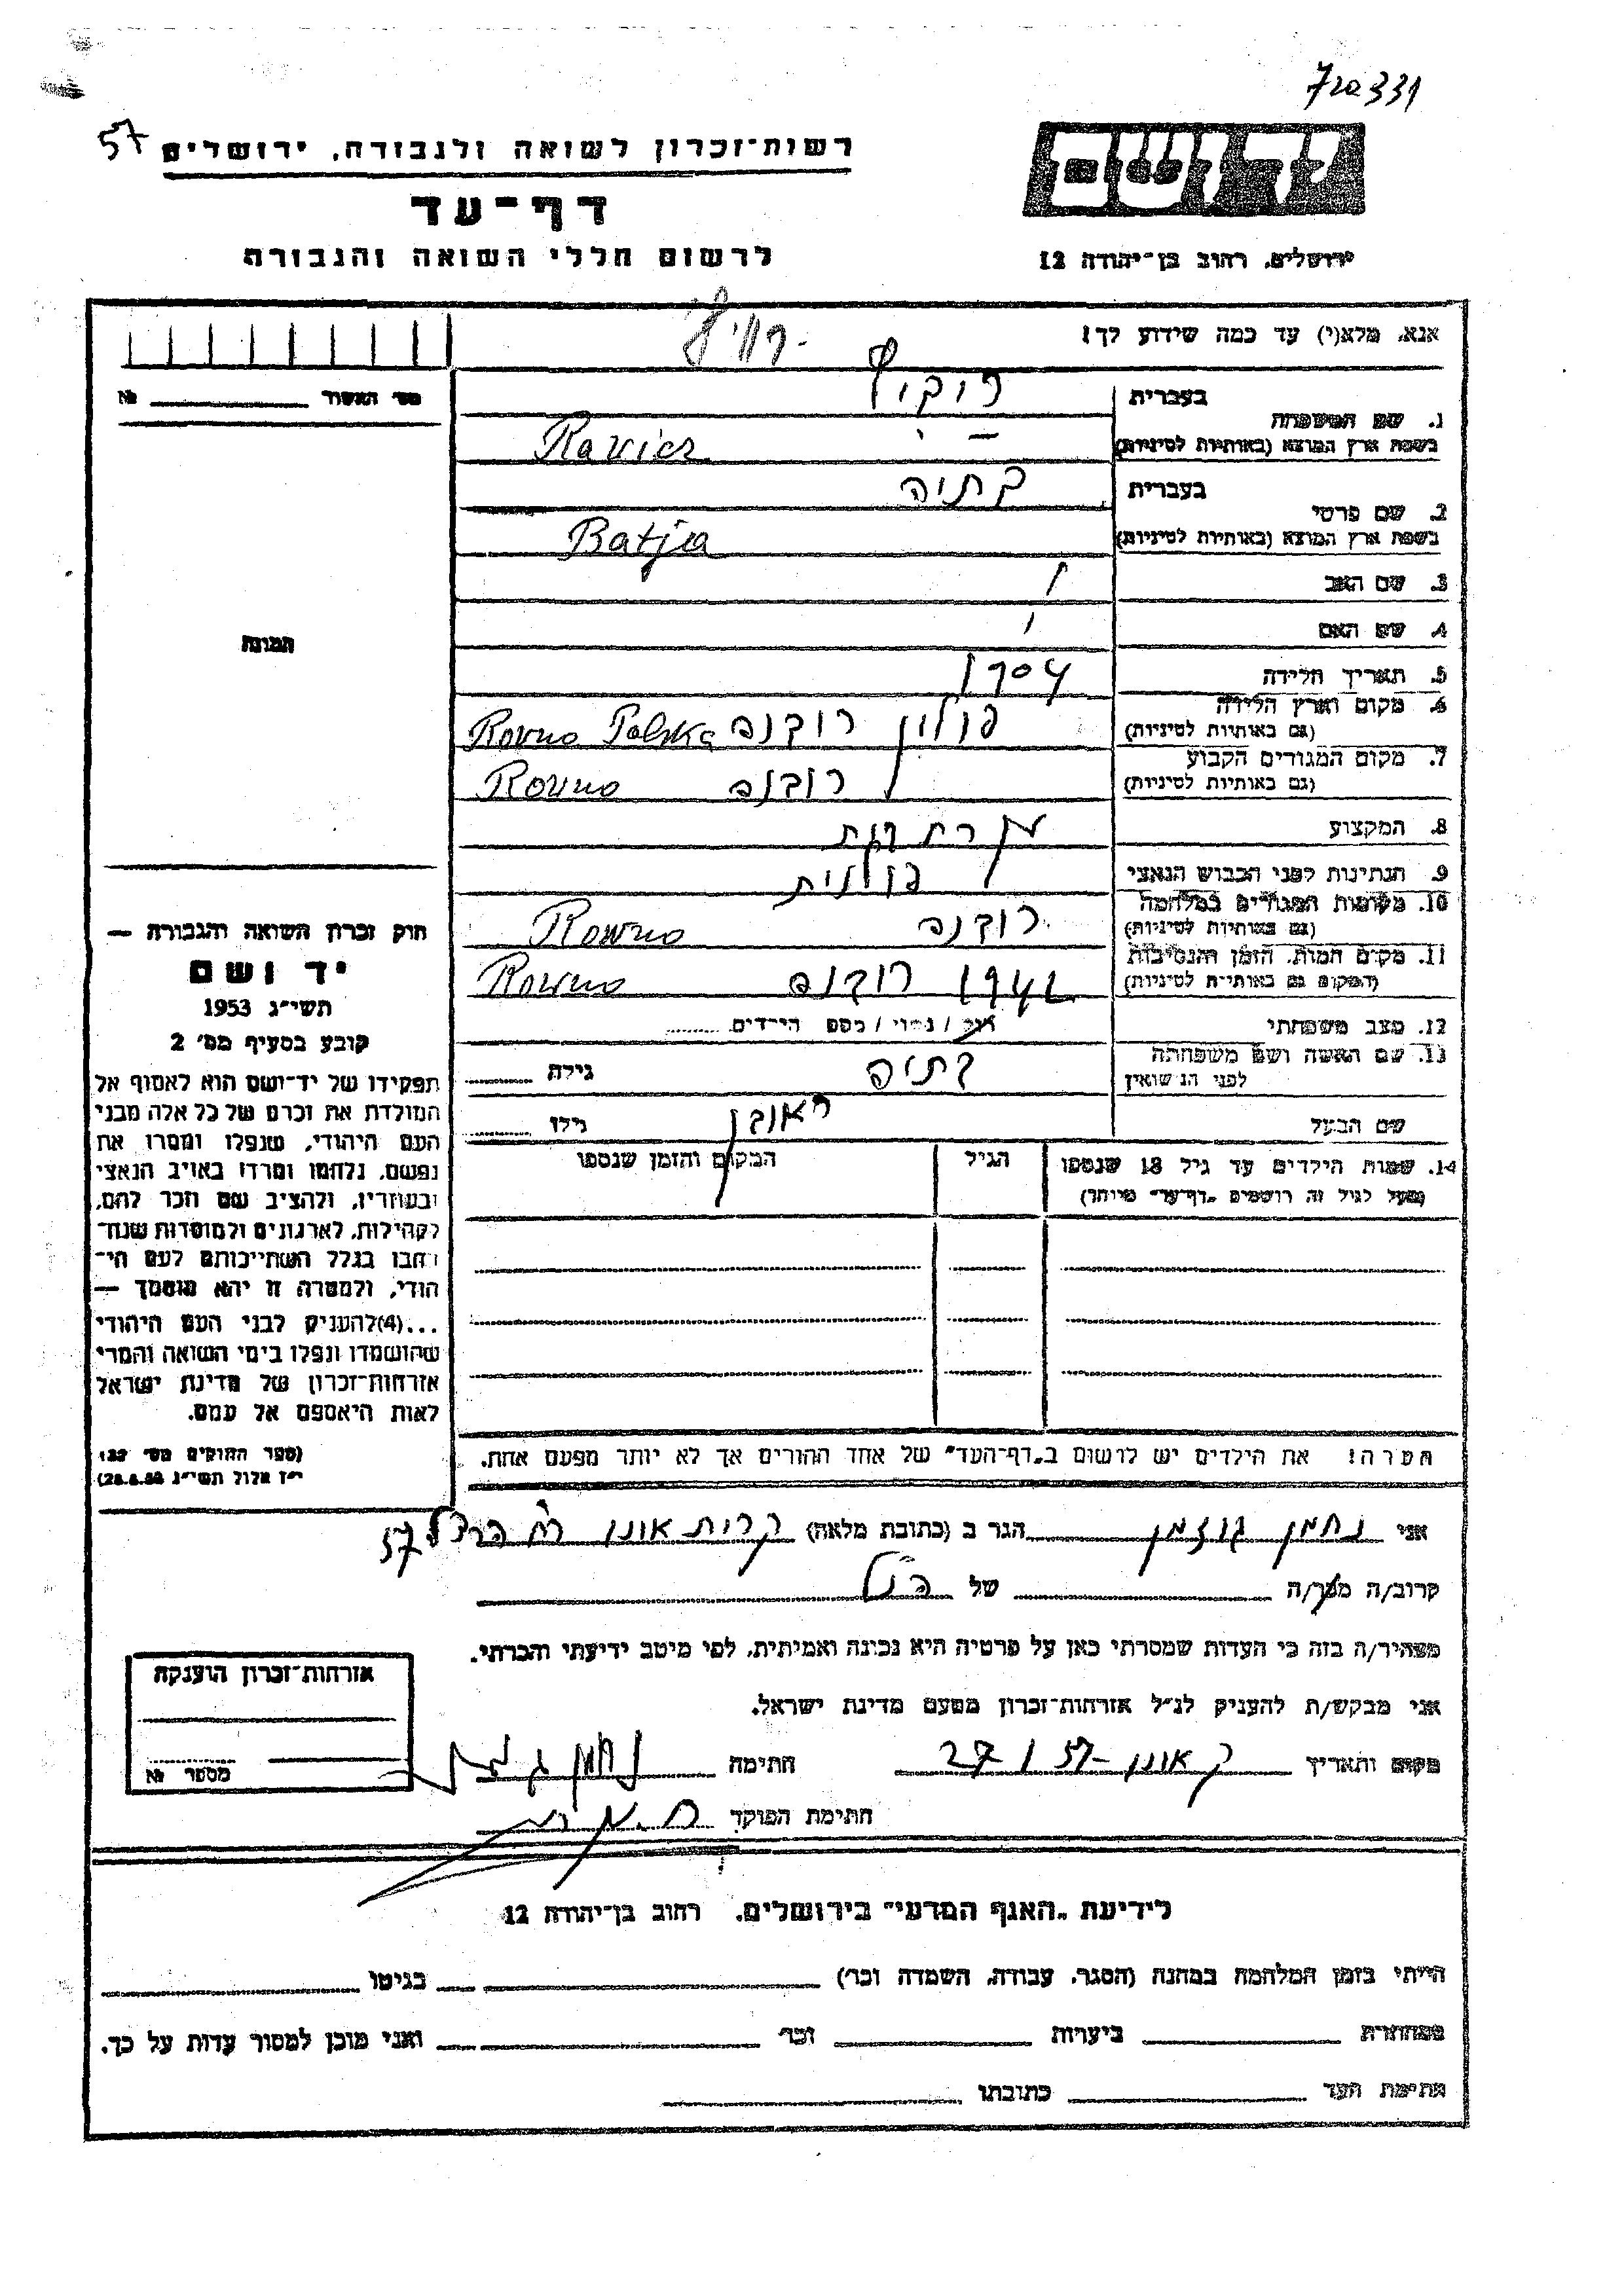 57
רשות־זכרון לשואה ולגבורה, ירושלים
דף־עד
לרשום חללי השואה והגבורה
ירושלים, רחוב בן־יהודה 12
אנא, מלא(י) עד כמה שידוע לך!
מס׳ האשור №
בעברית
1. שם המשפחה
בשפת ארץ המוצא (באותיות לטיניות)
בעברית בתיה
2. שם פרטי
בשפת ארץ המוצא (באותיות לטיניות) Batja
3. שם האב
4. שם האם
תמונה
5. תאריך הלידה 1904
6. מקום וארץ הלידה
(גם באותיות לטיניות) פולין רובנה Rowno Polska
7. מקום המגורים הקבוע
(גם באותיות לטיניות) רובנה Rowno
8. המקצוע
9. הנתינות לפני הכבוש הנאצי פולנית
10. מקומות המגורים במלחמה
(גם באותיות לטיניות) רובנה Rowno
11. מקום המות, הזמן והנסיבות
(המקום גם באותיות לטיניות) 1942 רובנה Rowno
12. מצב משפחתי רוק / נשוי / מספר הילדים
13. שם האשה ושם משפחתה
לפני הנשואין בתיה גילה
שם הבעל ראובן גילו
14. שמות הילדים עד גיל 18 שנספו הגיל המקום והזמן שנספו
(מעל לגיל זה רושמים „דף־עד״ מיוחד)
הערה! את הילדים יש לרשום ב„דף־העד״ של אחד ההורים אך לא יותר מפעם אחת.
חוק זכרון השואה והגבורה —
יד ושם
תשי״ג 1953
קובע בסעיף מס׳ 2
תפקידו של יד־ושם הוא לאסוף אל
המולדת את זכרם של כל אלה מבני
העם היהודי, שנפלו ומסרו את
נפשם, נלחמו ומרדו באויב הנאצי
ובעוזריו, ולהציב שם וזכר להם,
לקהילות, לארגונים ולמוסדות שנח־
רבו בגלל השתייכותם לעם הי־
הודי, ולמטרה זו יהא מוסמך —
...(4)להעניק לבני העם היהודי
שהושמדו ונפלו בימי השואה והמרי
אזרחות־זכרון של מדינת ישראל
לאות היאספם אל עמם.
(ספר החוקים מס׳ 132
י״ז אלול תשי״ג 28.8.53)
אני נחמן גוזמן הגר ב (כתובת מלאה) קרית אונו רח הרצל 57
קרוב/ה מכר/ה של הנ״ל
מצהיר/ה בזה כי העדות שמסרתי כאן על פרטיה היא נכונה ואמיתית, לפי מיטב ידיעתי והכרתי.
אני מבקש/ת להעניק לנ״ל אזרחות־זכרון מטעם מדינת ישראל.
מקום ותאריך ק אונו חתימה
חתימת הפוקד
אזרחות־זכרון הוענקה
מספר №
לידיעת „האגף המדעי״ בירושלים, רחוב בן־יהודה 12
הייתי בזמן המלחמה במחנה (הסגר, עבודה, השמדה וכר׳) בגיטו
במחתרת ביערות וכר׳ ואני מוכן למסור עדות על כך.
חתימת העד כתובתו